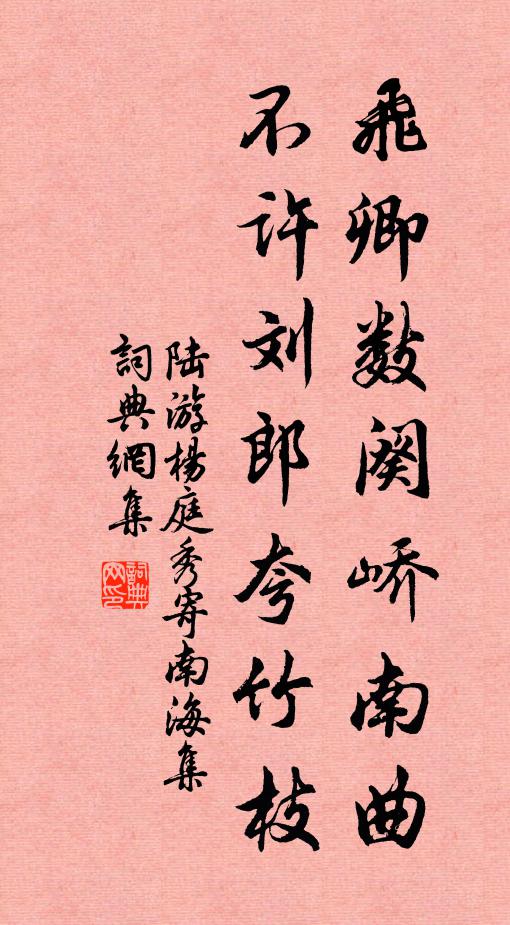 飛卿数阕峤南曲
不许刘郎夸竹枝
陆游楊庭秀寄南海集
詞典網集
詞典網印